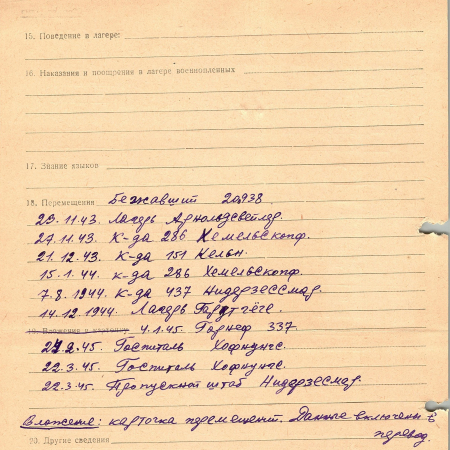 15. Поведение в лагере:
16. Наказания и поощрения в лагере военнопленных
17. Знание языков
18. Перемещения Бежавший 20938
23.11.43. Лагерь Арнольдсвейлер.
27.11.43. К-да 286 Хемельскопф.
21.12.43. К-да 151 Кельн.
15.1.44. К-да 286 Хемельскопф.
7.8.1944. К-да 437 Нидерзессмар.
14.12.1944. Лагерь
19. Вложение в карточку 4.1.45. 337.
22.2.45. Госпиталь Хофнунгс.
22.3.45. Госпиталь Хофнунгс.
22.3.45. Пропускной штаб Нидерзесмар.
Вложение: карточка перемещений. Данные включены в
перевод.
20. Другие сведения